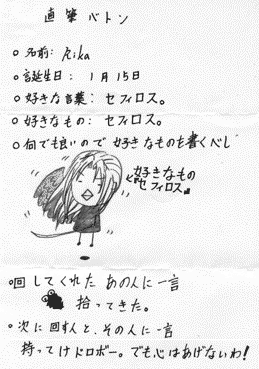 直筆バトン
○名前: Rika
○誕生日: 1月15日
○好きな言葉: セフィロス。
○好きなもの: セフィロス。
○何でも良いので好きなものを書くべし
好きなもの
セフィロス。
○回してくれたあの人に一言
拾ってきた。
○次に回す人と、その人に一言
持ってけドロボー。でも心はあげないわ!